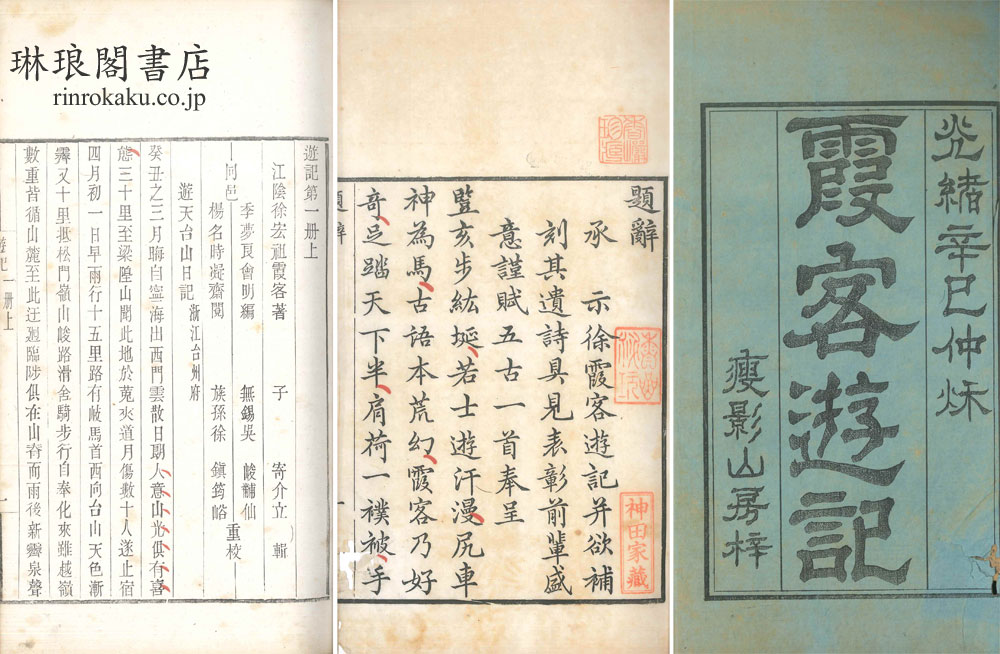 琳琅閣書店
rinrokaku.co.jp
光緒辛巳仲秌
霞客遊記
瘦影山房梓
題辭
承 示徐霞客遊記并欲補
刻其遺詩具見表彰前輩盛
意謹賦五古一首奉呈
豎亥步紘埏若士遊汗漫尻車
神為馬古語本荒幻霞客乃好
奇足踏天下半肩荷一襆被手
題辭
神田家藏
遊記第一册上
江陰徐宏祖霞客著 子 寄介立 輯
季夢良會明編 無錫吳 峻黼仙
同邑 重校
楊名時凝齋閱 族孫徐 鎮筠峪
遊天台山日記 浙江台州府
癸丑之三月晦自寧海出西門雲散日朗人意山光俱有喜
態三十里至梁隍山聞此地於菟夾道月傷數十人遂止宿
四月初一日早雨行十五里路有岐馬首西向台山天色漸
霽又十里抵松門嶺山峻路滑舍騎步行自奉化來雖越嶺
數重皆循山麓至此迂迴臨陟俱在山脊而雨後新霽泉聲
遊記一册上